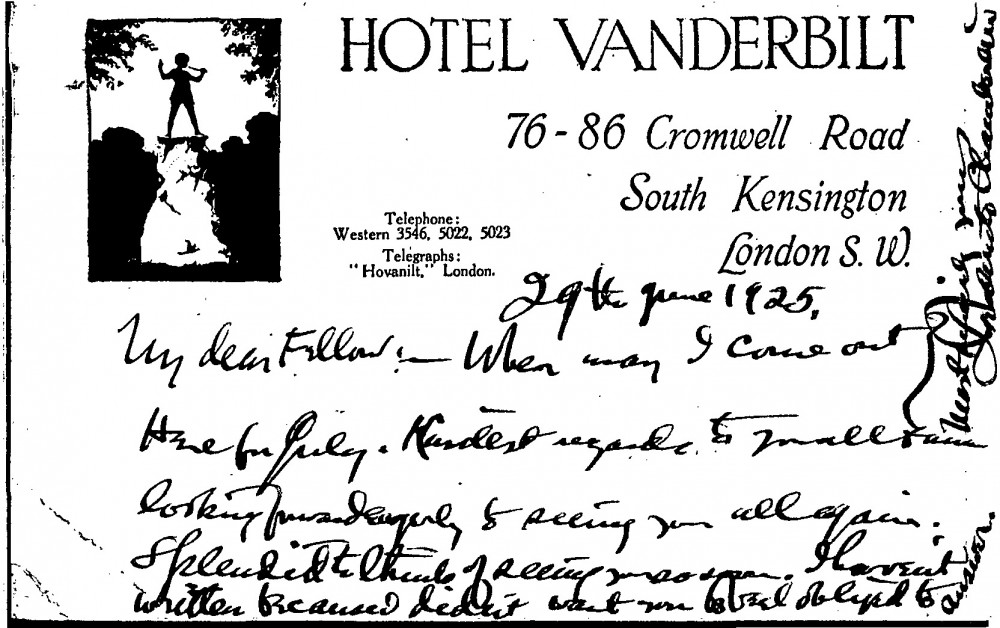 HOTEL VANDERBILT
76-86 Cromwell Road
South Kensington
London S. W.
Telephone:
Western 3546, 5022, 5023
Telegraphs:
"Hovanilt," London.
29th June 1925.
My dear Fellow:— When may I come out
Here for July. Kindest regards to you all &
looking forward eagerly to seeing you all again.
Splendid to think of seeing you so soon. I haven't
written because I didn't want you to feel obliged to
answer.
Most